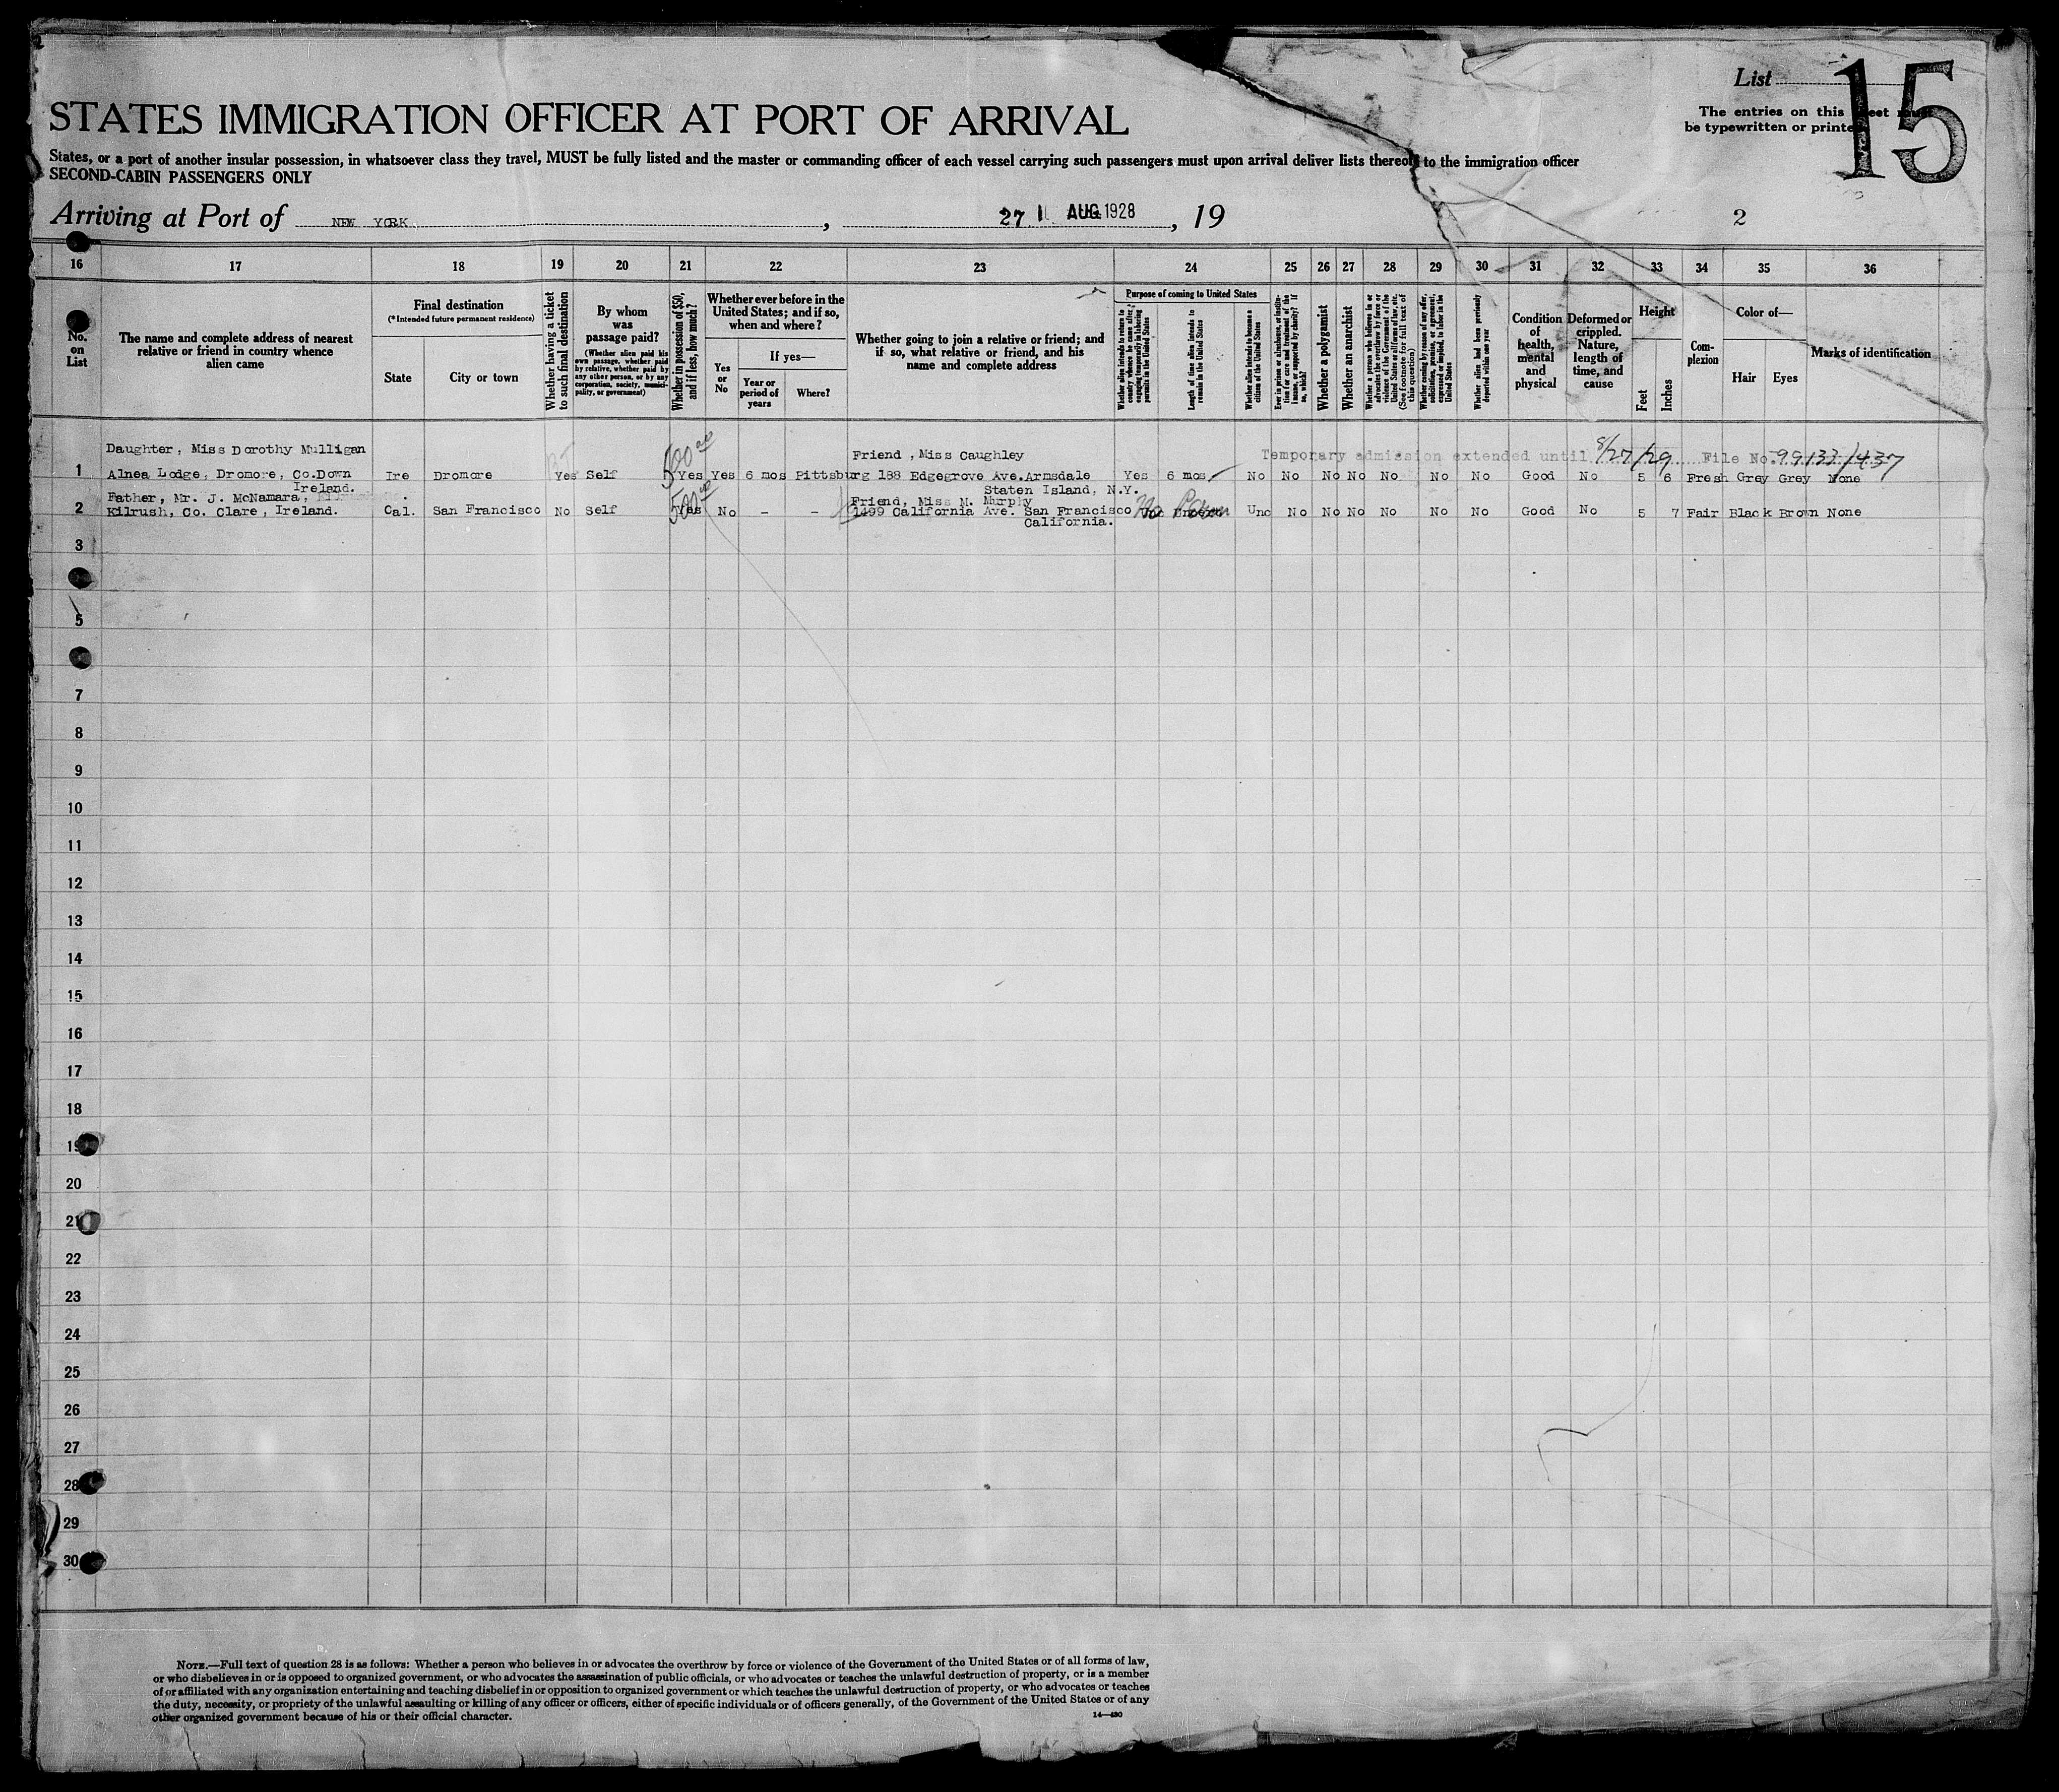 List
15
The entries on this sheet must
be typewritten or printed
STATES IMMIGRATION OFFICER AT PORT OF ARRIVAL
States, or a port of another insular possession, in whatsoever class they travel, MUST be fully listed and the master or commanding officer of each vessel carrying such passengers must upon arrival deliver lists thereof to the immigration officer
SECOND-CABIN PASSENGERS ONLY
Arriving at Port of NEW YORK, 27 AUG 1928, 19
2
16 17 18 19 20 21 22 23 24 25 26 27 28 29 30 31 32 33 34 35 36
No. on List
The name and complete address of nearest relative or friend in country whence alien came
Final destination
(*Intended future permanent residence)
State
City or town
Whether having a ticket to such final destination
By whom was passage paid?
(Whether alien paid his own passage, whether paid by relative, whether paid by any other person, or by any corporation, society, municipality, or government)
Whether in possession of $50, and if less, how much?
Whether ever before in the United States; and if so, when and where?
Yes or No
If yes—
Year or period of years
Where?
Whether going to join a relative or friend; and if so, what relative or friend, and his name and complete address
Purpose of coming to United States
Whether alien intends to return to country whence he came after engaging temporarily in laboring pursuits in the United States
Length of time alien intends to remain in the United States
Whether alien intends to become a citizen of the United States
Ever in prison or almshouse, or institution for care and treatment of the insane, or supported by charity? If so, which?
Whether a polygamist
Whether an anarchist
Whether a person who believes in or advocates the overthrow by force or violence of the Government of the United States or all forms of law, etc. (See footnote for full text of this question)
Whether coming by reason of any offer, solicitation, promise, or agreement, expressed or implied, to labor in the United States
Whether alien had been previously deported within one year
Condition of health, mental and physical
Deformed or crippled. Nature, length of time, and cause
Height
Feet
Inches
Complexion
Color of—
Hair
Eyes
Marks of identification
Daughter, Miss Dorothy Mulligan
Friend, Miss Caughley
Temporary admission extended until 8/27/29 File No. 99133/437
1 Alnea Lodge, Dromore, Co.Down Ire Dromore Yes Self 500 Yes Yes 6 mos Pittsburg 188 Edgegrove Ave.Armsdale Yes 6 mos No No No No No No No Good No 5 6 Fresh Grey Grey None
Ireland.
Staten Island, N.Y.
Father, Mr. J. McNamara,
Friend, Miss M. Murphy
2 Kilrush, Co. Clare, Ireland. Cal. San Francisco No Self 500 Yes No - - 1499 California Ave. San Francisco No Perm Unc No No No No No No Good No 5 7 Fair Black Brown None
California.
3
5
7
8
9
10
11
12
13
14
15
16
17
18
19
20
21
22
23
24
25
26
27
28
29
30
NOTE.—Full text of question 28 is as follows: Whether a person who believes in or advocates the overthrow by force or violence of the Government of the United States or of all forms of law,
or who disbelieves in or is opposed to organized government, or who advocates the assassination of public officials, or who advocates or teaches the unlawful destruction of property, or is a member
of or affiliated with any organization entertaining and teaching disbelief in or opposition to organized government or which teaches the unlawful destruction of property, or who advocates or teaches
the duty, necessity, or propriety of the unlawful assaulting or killing of any officer or officers, either of specific individuals or of officers generally, of the Government of the United States or of any
other organized government because of his or their official character.
14—430